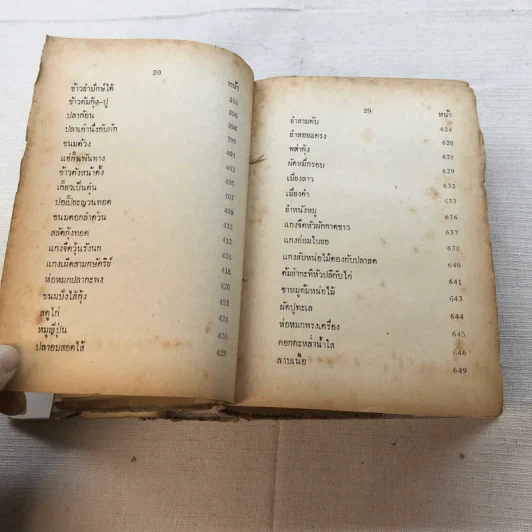 20
หน้า
ข้าวยำปักษ์ใต้ 394
ข้าวต้มกุ้ง-ปู 396
ปลาก้อน 398
ปลาเก๋านึ่งกับผัก 399
ขนมด้วง 401
แฮ่กึ๊นพันทาง 403
ข้าวตังหน้าตั้ง 405
เกี๊ยวเป็นตุ๋น 407
ปอเปี๊ยะญวนทอด 409
ขนมดอกลำดวน 412
สลัดกุ้งทอด 413
แกงจืดวุ้นรังนก 416
แกงเผ็ดสามกษัตริย์ 418
ห่อหมกปลากะพง 420
ขนมปังไส้กุ้ง 422
สตูไก่ 424
หมูญี่ปุ่น 426
ปลาอบสอดไส้ 428
29
หน้า
ยำสามดับ 624
ยำหอยแครง 626
พล่ากุ้ง 628
ผัดหมี่กรอบ 629
เมี่ยงลาว 632
เมี่ยงคำ 633
ยำหนังหมู 636
แกงจืดหัวผักกาดขาว 637
แกงอ่อมใบยอ 638
แกงลับหน่อไม้ดองกับปลาสด 640
ต้มข่ากะทิหัวปลีกับไก่ 641
ขาหมูต้มหน่อไม้ 643
ผัดปูทะเล 644
ห่อหมกทรงเครื่อง 645
ดอกกะหล่ำน้ำใส 646
ลาบเนื้อ 649